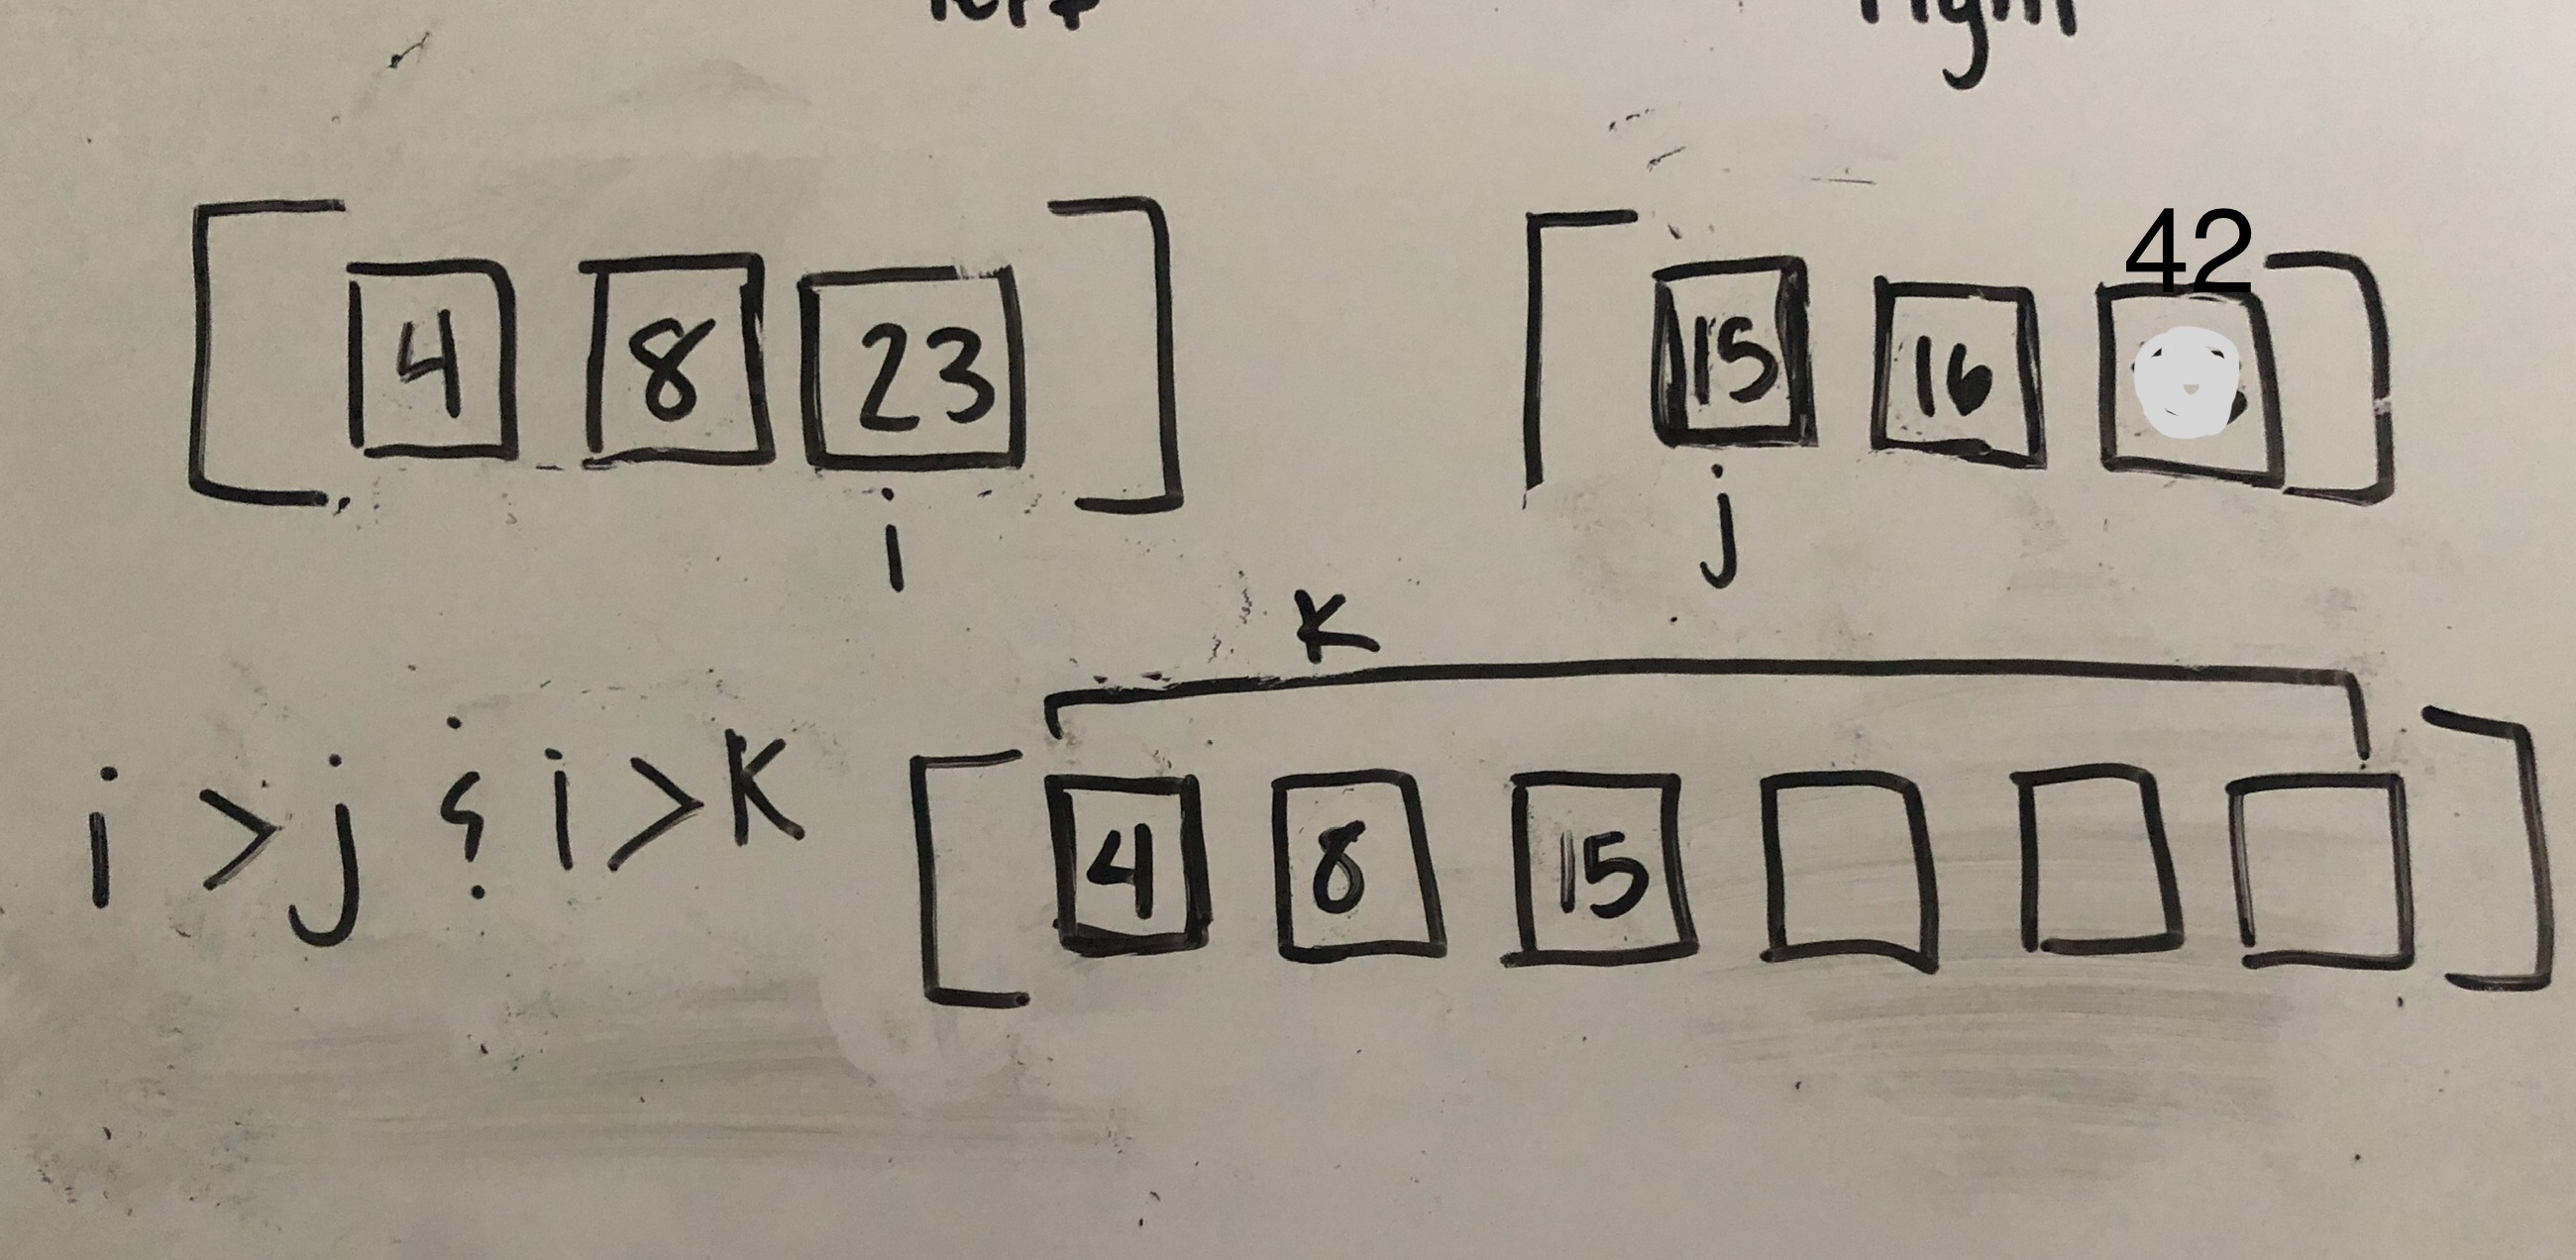 left right
42
4 8 23 15 16
i j
K
i > j & i > K 4 8 15